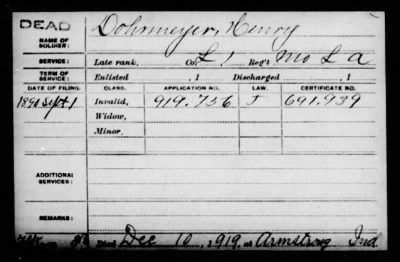 DEAD
NAME OF SOLDIER: Dohrmeyer, Henry
SERVICE: Late rank, Co. L, 1 Reg't Mo L A
TERM OF SERVICE: Enlisted , 1 Discharged , 1
DATE OF FILING. CLASS. APPLICATION NO. LAW. CERTIFICATE NO.
1890 Sept 1 Invalid, 919.756 J 691.939
Widow,
Minor,
ADDITIONAL SERVICES:
REMARKS:
Died Dec 10, 1919, at Armstrong Ind